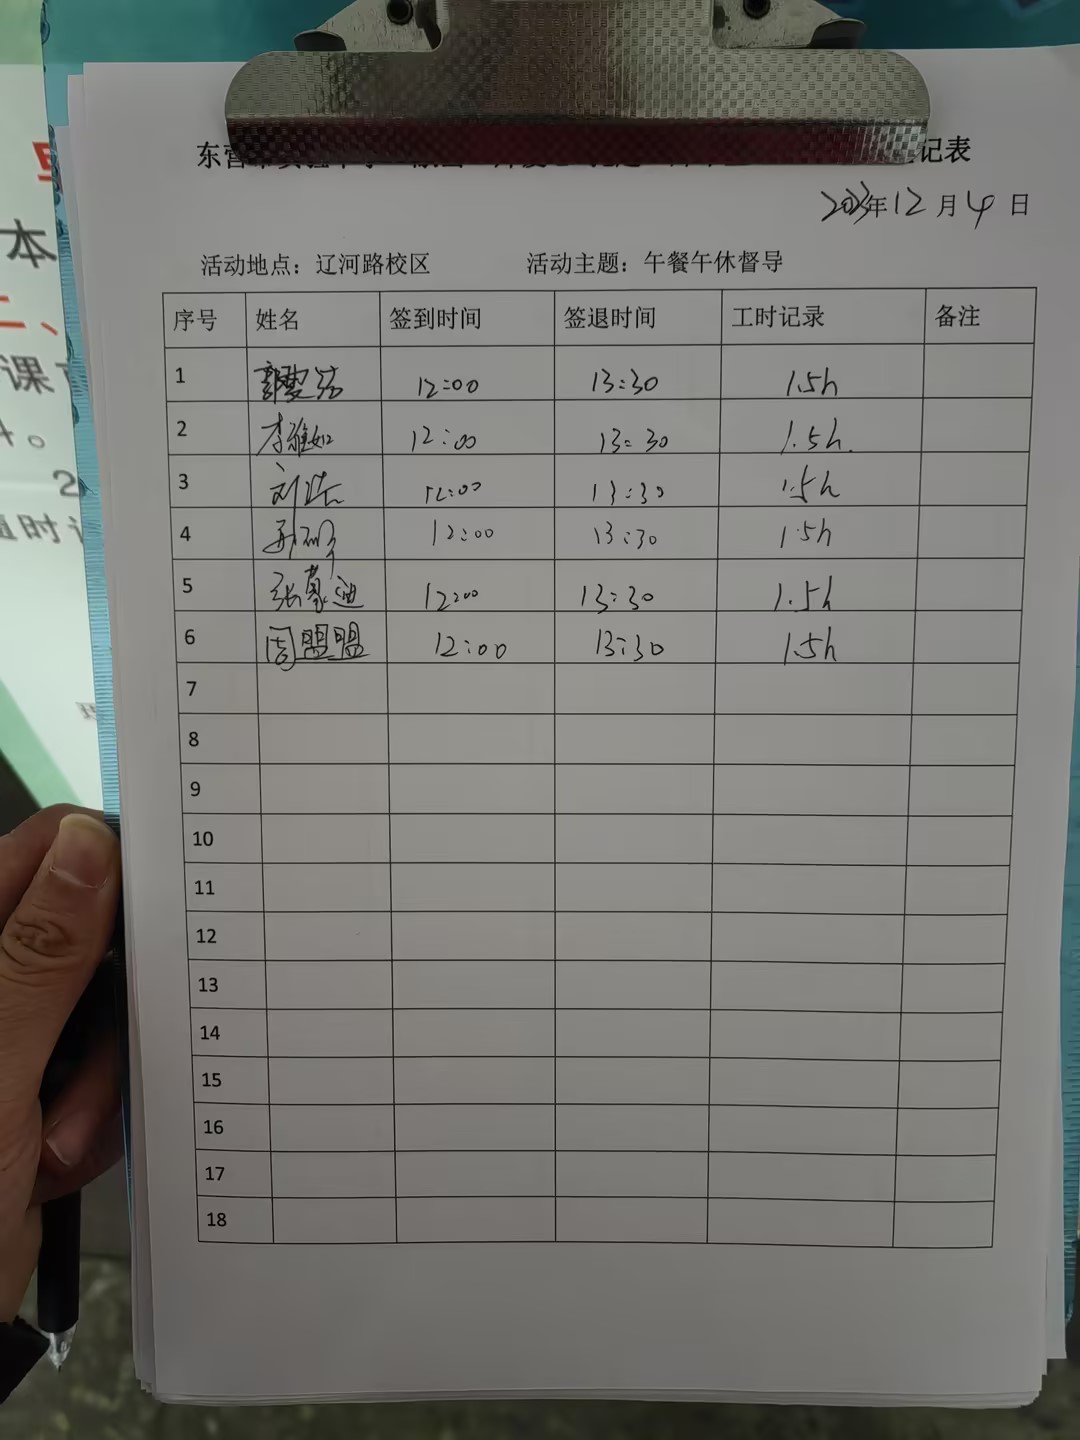 东营
记表
2023年12月4日
活动地点：辽河路校区 活动主题：午餐午休督导
序号 姓名 签到时间 签退时间 工时记录 备注
1 12:00 13:30 1.5h
2 李雅如 12:00 13:30 1.5h.
3 刘 12:00 13:30 1.5h
4 12:00 13:30 1.5h
5 张蒙迪 12:00 13:30 1.5h
6 周盟盟 12:00 13:30 1.5h
7
8
9
10
11
12
13
14
15
16
17
18
本
二、
课
。
2
时